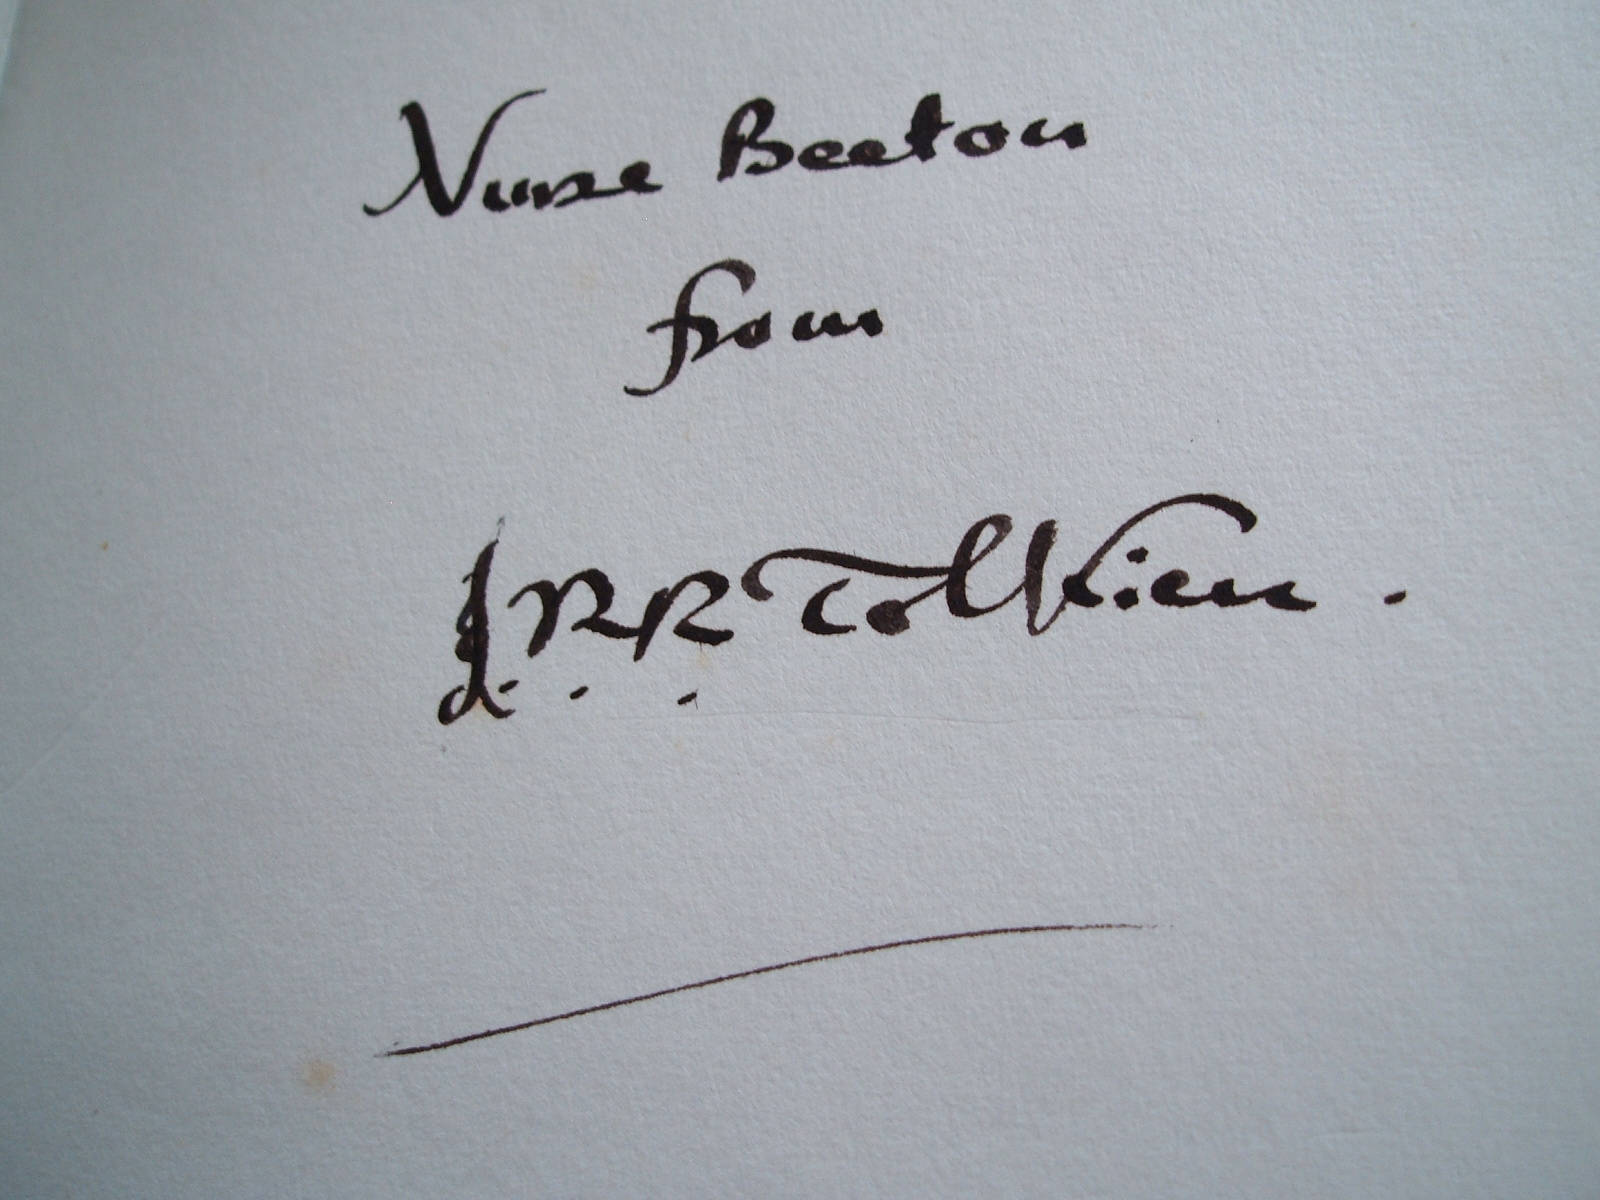 Nurse Beeton
from
J.R.R. Tolkien.